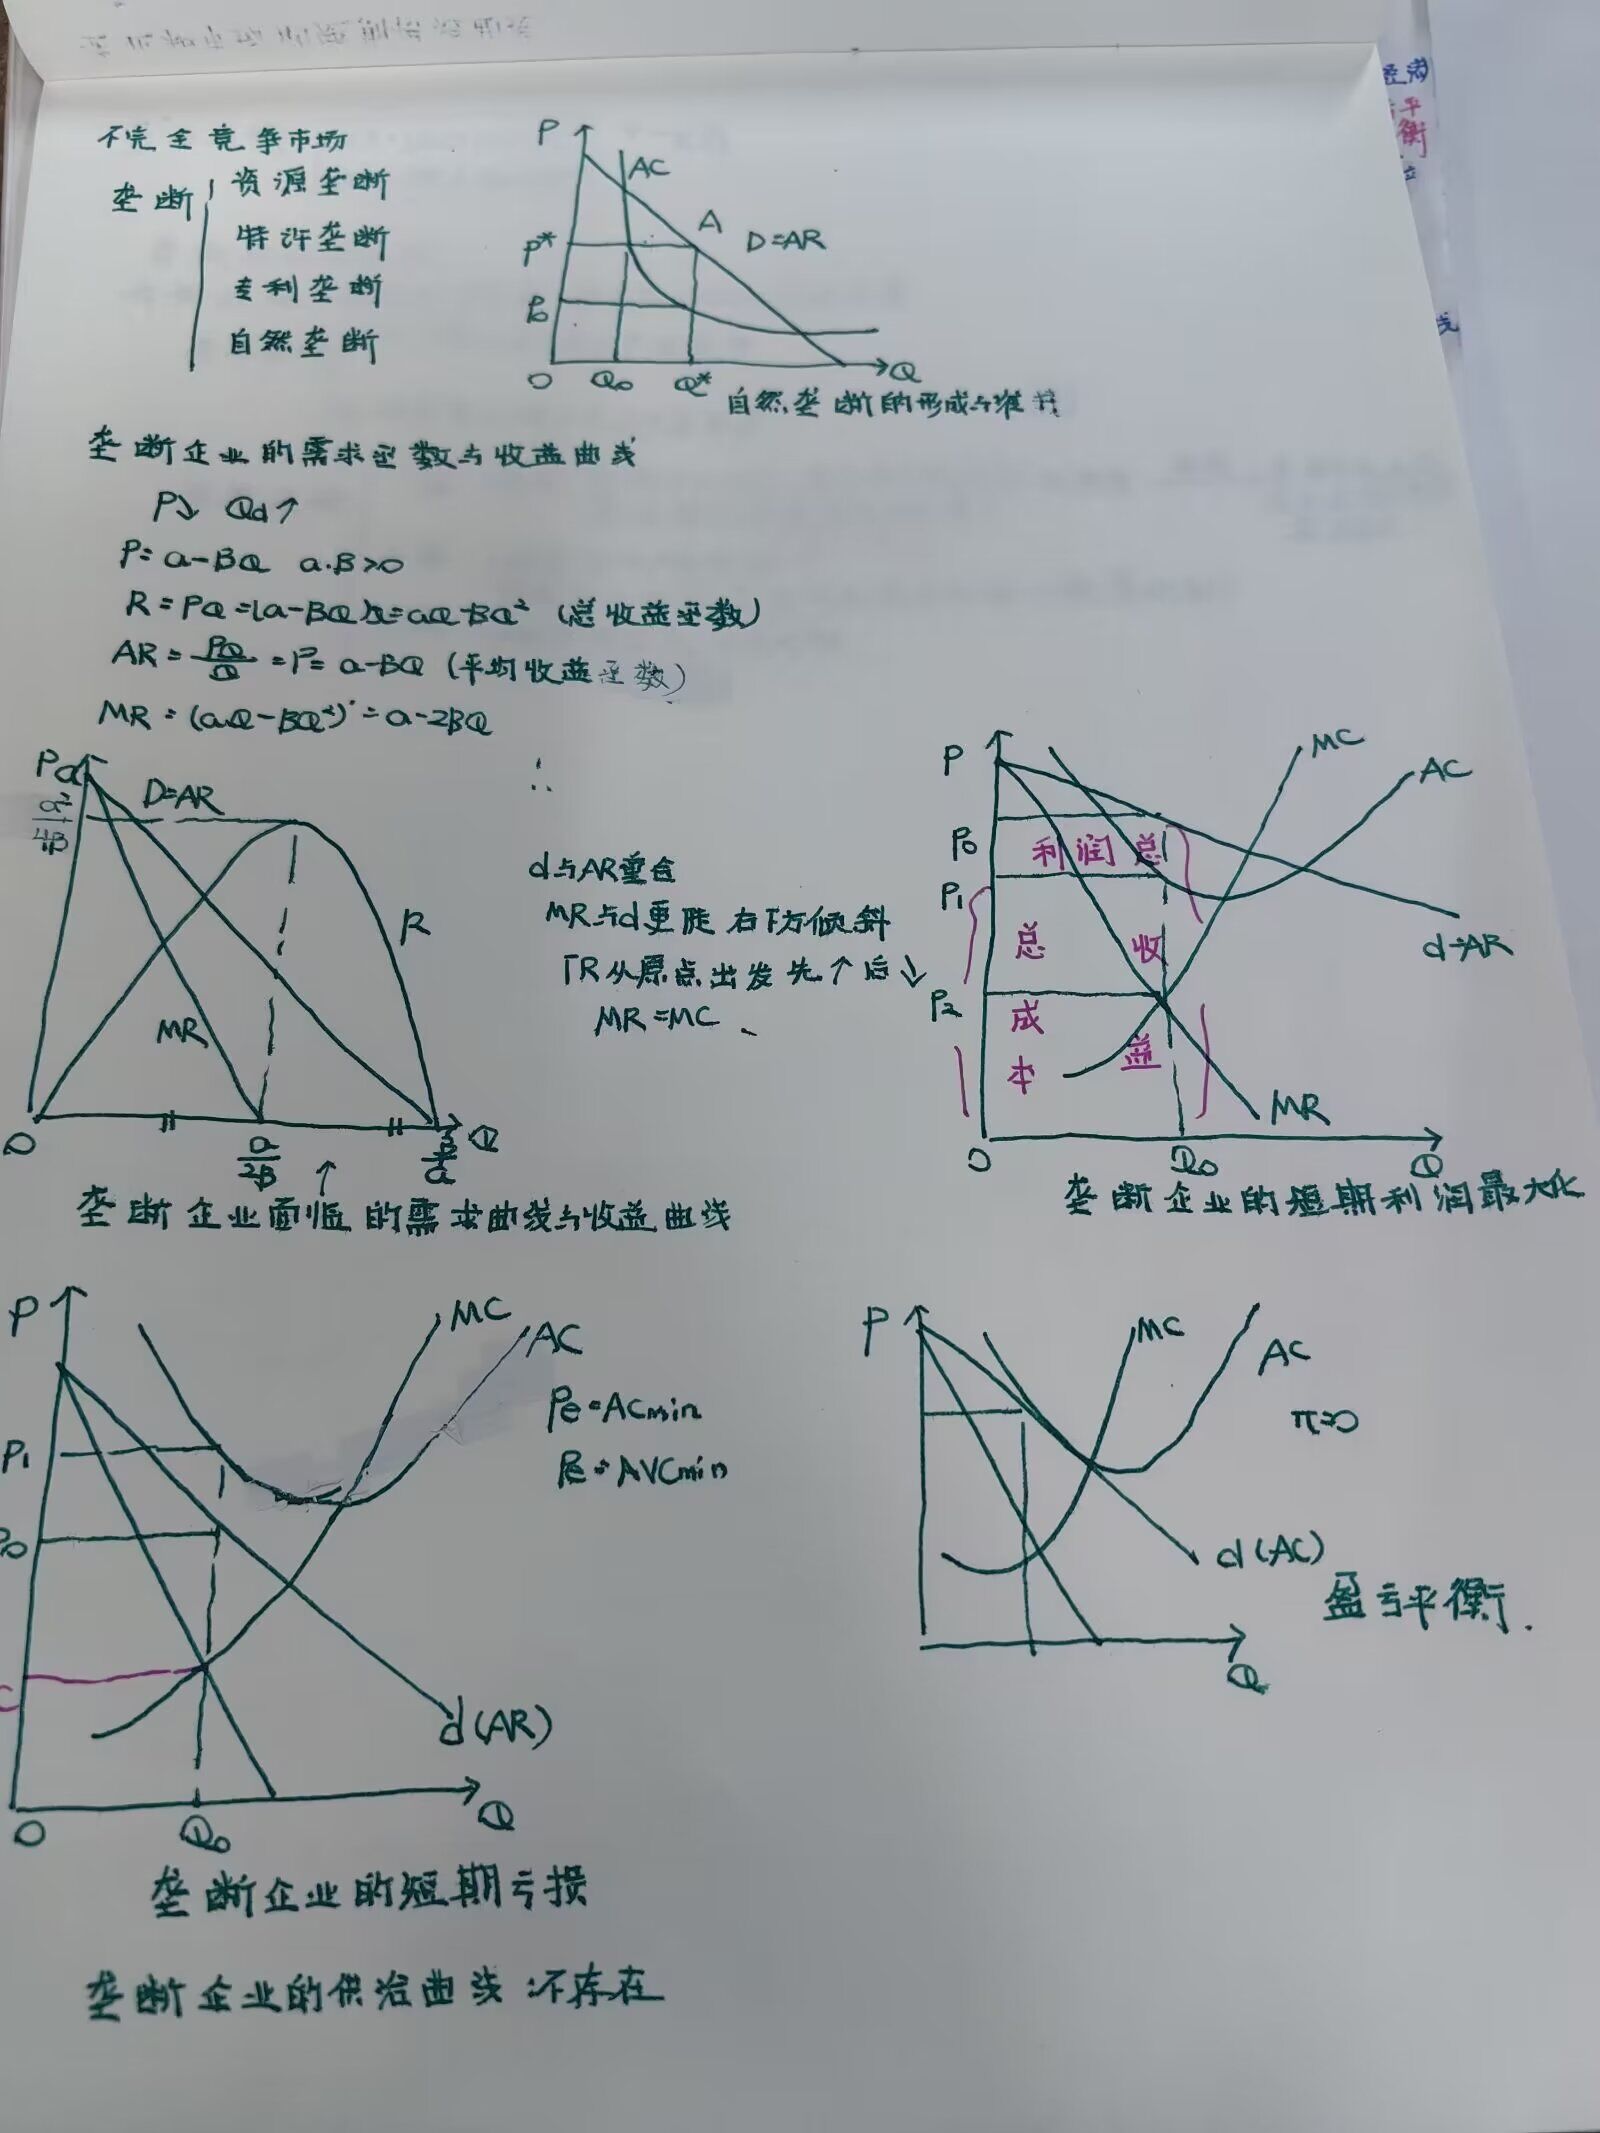 不完全竞争市场
垄断
资源垄断
特许垄断
专利垄断
自然垄断
P
AC
A
D=AR
P*
P₀
O
Q₀
Q*
Q
自然垄断的形成与维持
垄断企业的需求函数与收益曲线
P↓ Qd↑
P=a-BQ a.B>0
R=PQ=(a-BQ)Q=aQ-BQ² (总收益函数)
AR=PQ/Q=P=a-BQ (平均收益函数)
MR=(aQ-BQ²)'=a-2BQ
∴
P
a
a²/4B
D=AR
R
MR
O
a/2B
B/a
Q
↑
垄断企业面临的需求曲线与收益曲线
d与AR重合
MR与d更陡 右下方倾斜
TR从原点出发先↑后↓
MR=MC、
P
MC
AC
P₀
利润 总
P₁
d=AR
总 收
P₂
成 益
本
MR
O
Q₀
Q
垄断企业的短期利润最大化
P
MC
AC
Pe=ACmin
Pe=AVCmin
P₁
P₀
C
d(AR)
O
Q₀
Q
垄断企业的短期亏损
P
MC
AC
π=0
d(AC)
盈亏平衡.
Q
垄断企业的供给曲线:不存在